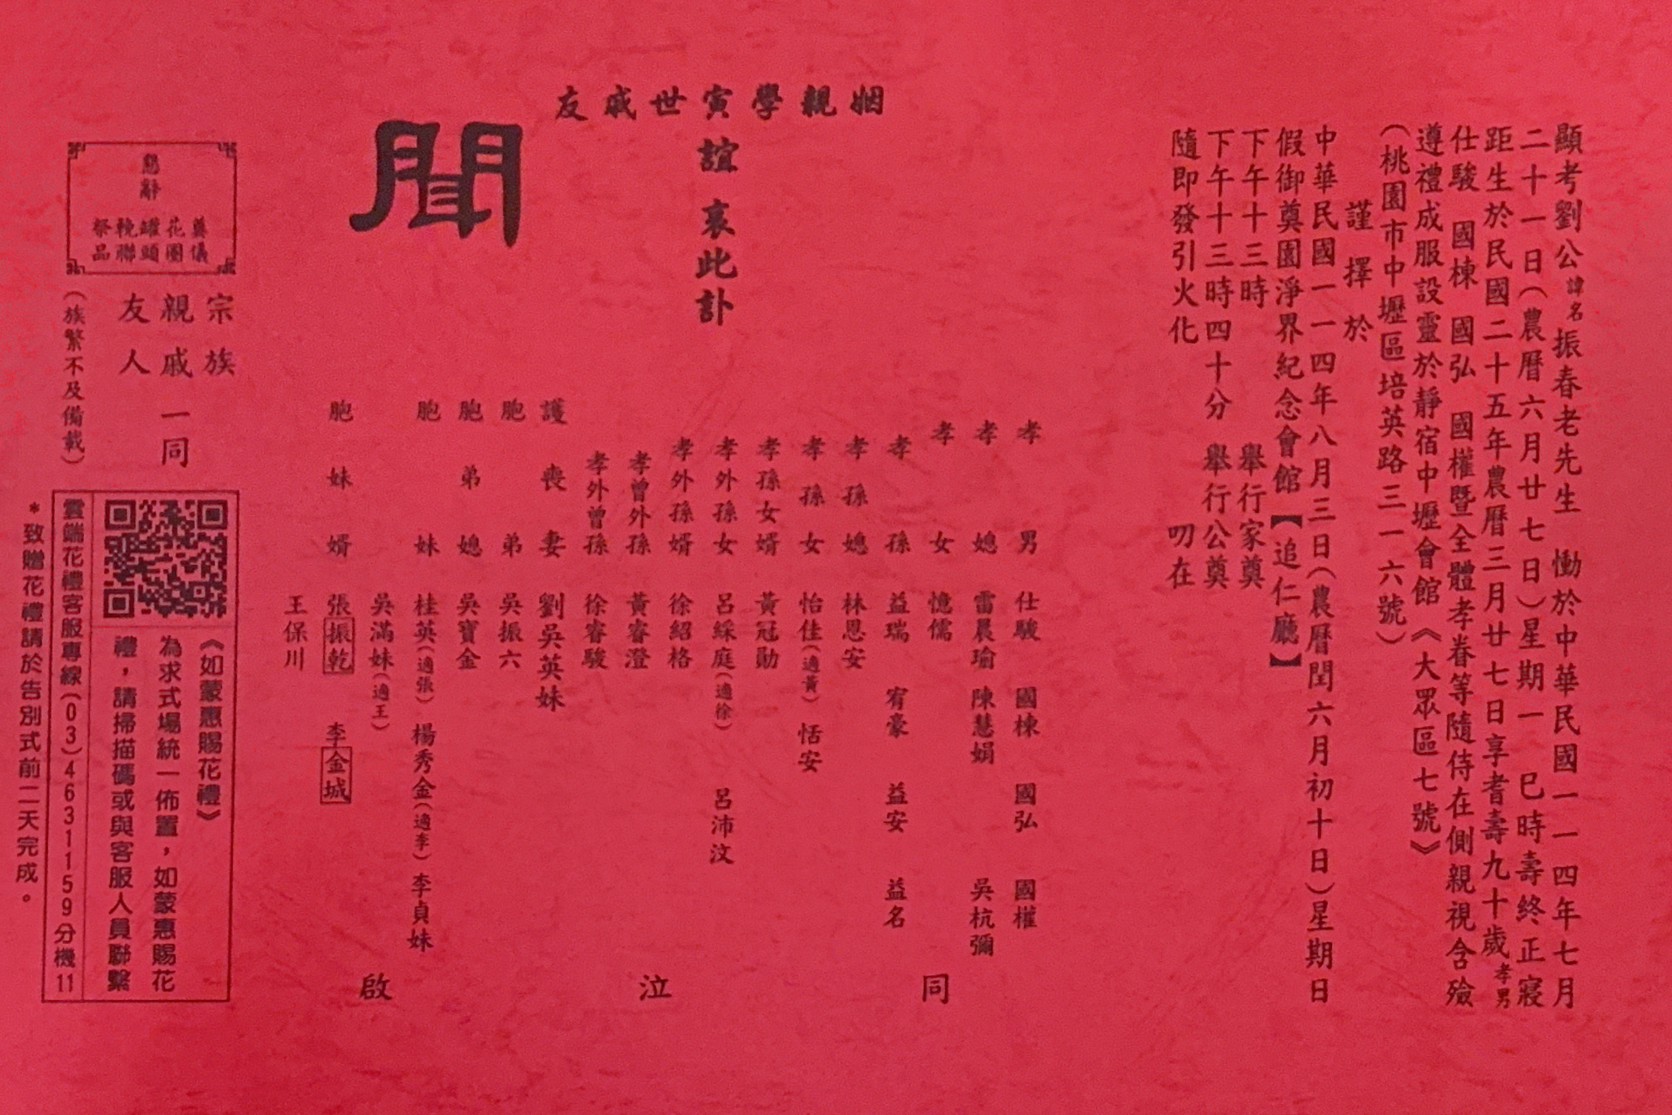 顯考劉公諱名振春老先生　慟於中華民國一一四年七月
二十一日(農曆六月廿七日)星期一　巳時壽終正寢
距生於民國二十五年農曆三月廿七日享耆壽九十歲孝男
仕駿　國棟　國弘　國權暨全體孝眷等隨侍在側親視含殮
遵禮成服設靈於靜宿中壢會館《大眾區七號》
(桃園市中壢區培英路三一六號)
謹擇於
中華民國一一四年八月三日(農曆閏六月初十日)星期日
假御奠園淨界紀念會館【追仁廳】
下午十三時　舉行家奠
下午十三時四十分　舉行公奠
隨即發引火化　叨在
姻親學寅世戚友
誼　哀此訃
聞
孝男　仕駿　國棟　國弘　國權
孝媳　雷晨瑜　陳慧娟　吳杭彌
孝女　憶儒
孝孫　益瑞　宥豪　益安　益名
孝孫媳　林恩安
孝孫女　怡佳(適黃)　恬安
孝孫女婿　黃冠勛
孝外孫女　呂綵庭(適徐)　呂沛汶
孝外孫婿　徐紹格
孝曾外孫　黃睿澄
孝外曾孫　徐睿駿
護喪妻　劉吳英妹
胞弟　吳振六
胞弟媳　吳寶金
胞妹　桂英(適張)　楊秀金(適李)　李貞妹
吳滿妹(適王)
胞妹婿　張振乾　李金城
王保川
同泣啟
宗族
親戚一同
友人
(族繁不及備載)
懇辭
奠儀
花圈
罐頭
輓聯
祭品
《如蒙惠賜花禮》
為求式場統一佈置，如蒙惠賜花
禮，請掃描碼或與客服人員聯繫
雲端花禮客服專線(03)4631159分機11
*致贈花禮請於告別式前二天完成。